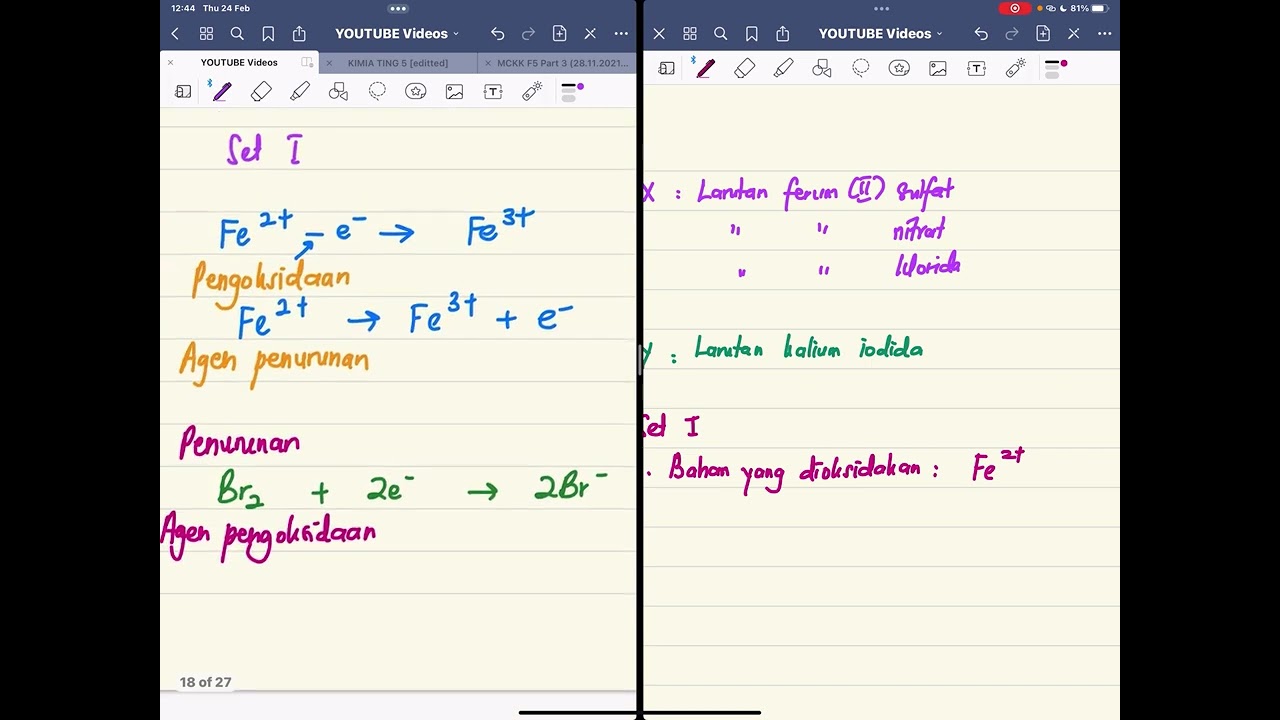 12:44 Thu 24 Feb
81%
YOUTUBE Videos
YOUTUBE Videos
YOUTUBE Videos
KIMIA TING 5 [editted]
MCKK F5 Part 3 (28.11.2021...
Set I
Fe²⁺ – e⁻ → Fe³⁺
Pengoksidaan
Fe²⁺ → Fe³⁺ + e⁻
Agen penurunan
Penurunan
Br₂ + 2e⁻ → 2Br⁻
Agen pengoksidaan
18 of 27
X : Larutan ferum (II) sulfat
" " nitrat
" " klorida
Y : Larutan kalium iodida
Set I
. Bahan yang dioksidakan : Fe²⁺